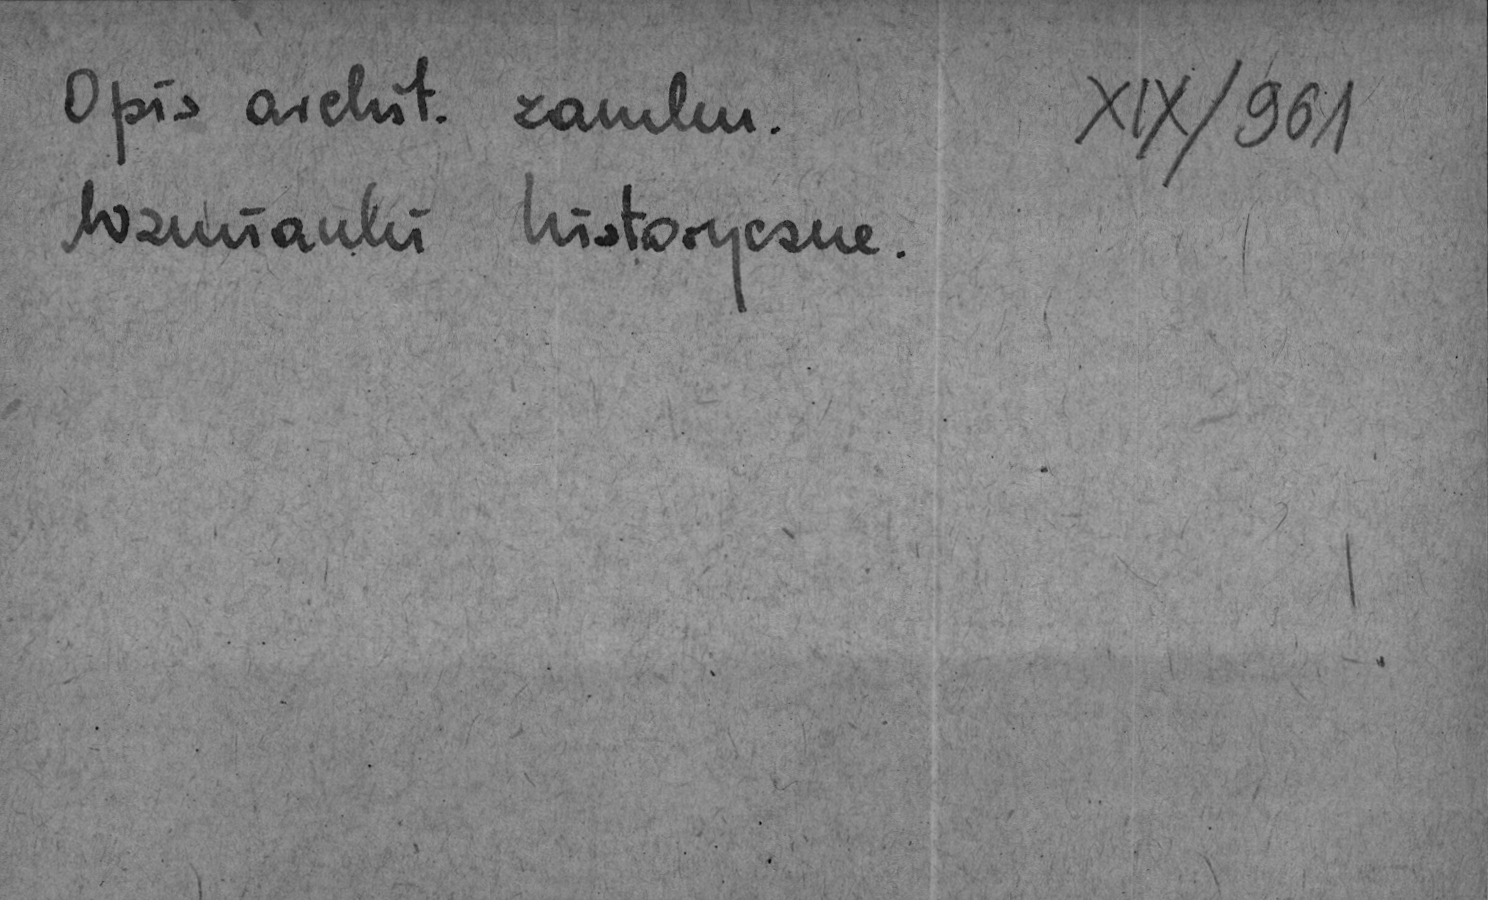 Opis archit. zamku. XIX/961
Wzmianki historyczne.